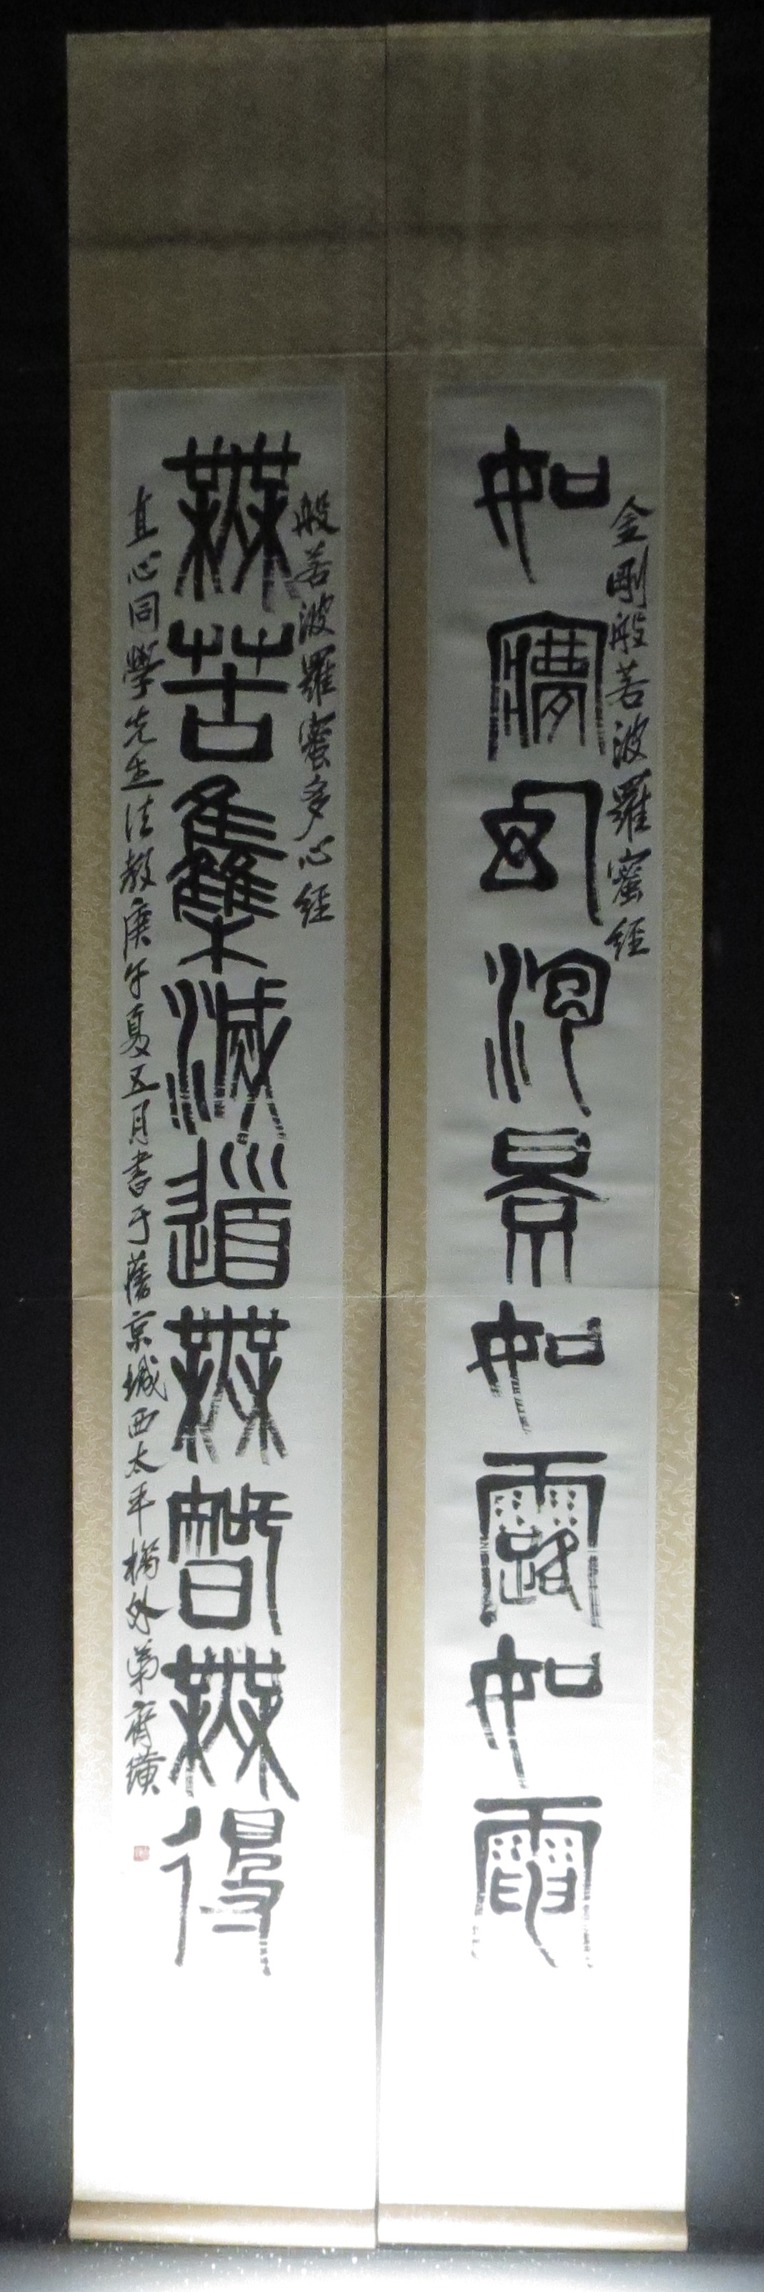 金剛般若波羅蜜經
如夢幻泡景如露如電
般若波羅蜜多心經
無苦集滅道無智無得
直心同學先生法教庚午夏五月書于舊京城西太平橋外弟齊璜